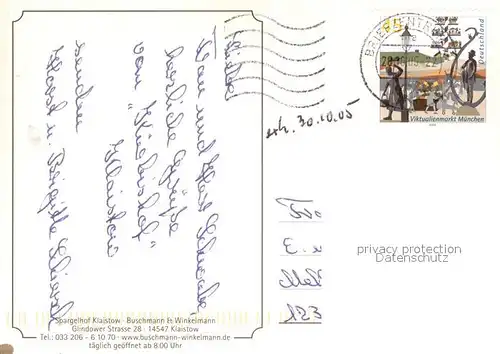 Liebe
Frau und Herr Schwabe,
herzliche Grüße
vom "Kürbishof"
Klaistow
senden
Horst u. Brigitte
erh. 30.10.05
BRIEFZENTRUM
Deutschland
Viktualienmarkt München
E.
123
privacy protection
Datenschutz
Spargelhof Klaistow · Buschmann & Winkelmann
Glindower Strasse 28 · 14547 Klaistow
Tel.: 033 206 - 6 10 70 · www.buschmann-winkelmann.de
täglich geöffnet ab 8:00 Uhr